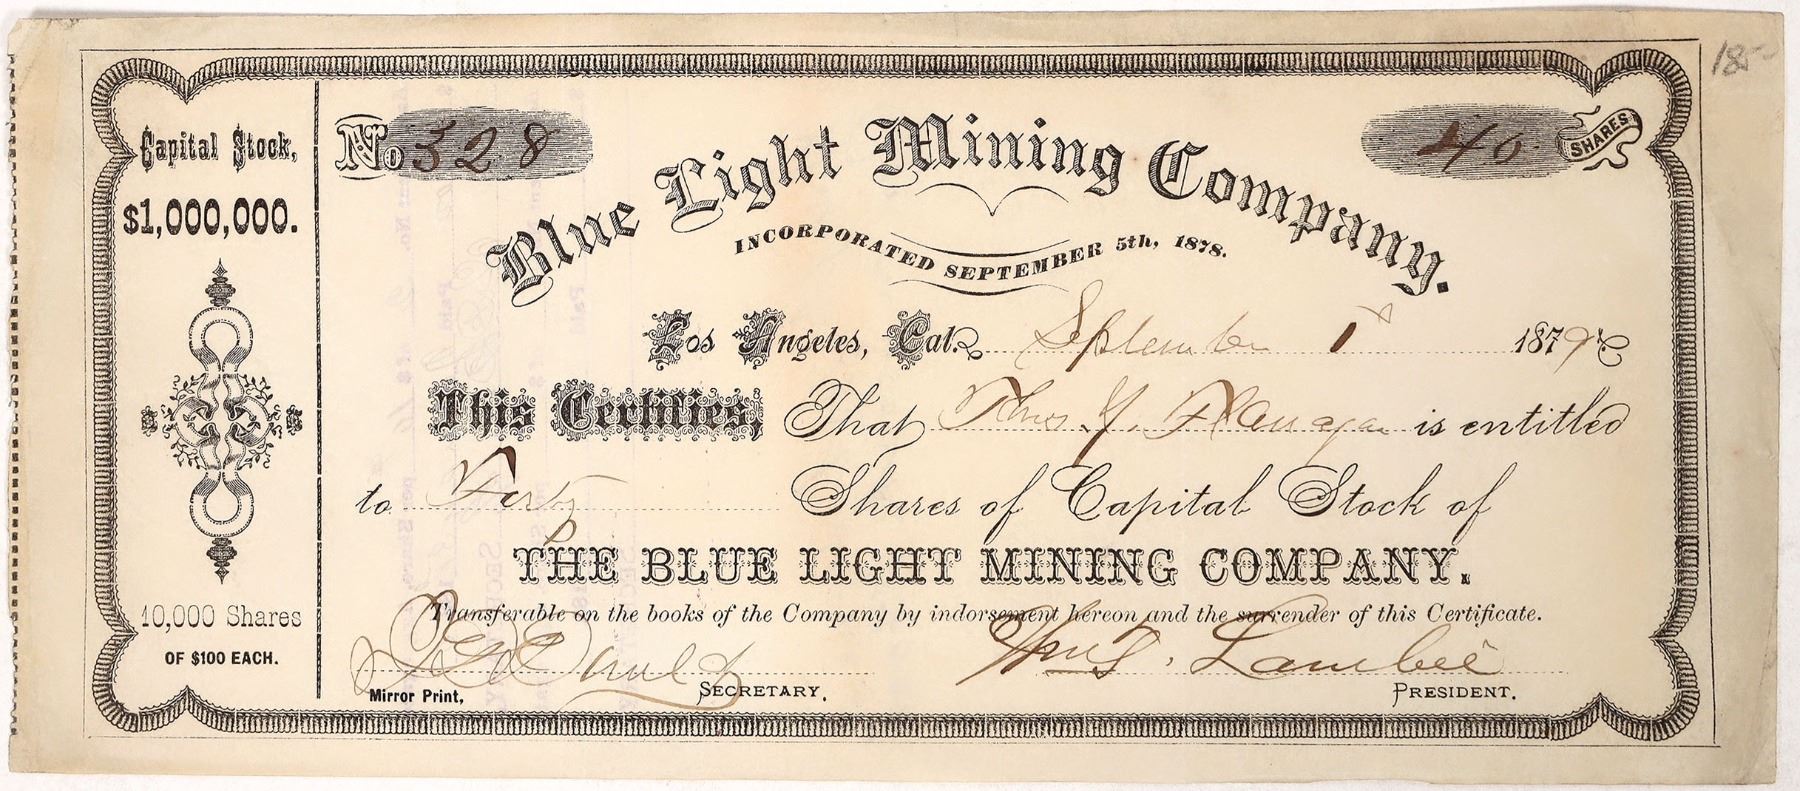 18.—
Capital Stock,
$1,000,000.
10,000 Shares
OF $100 EACH.
No 328
40 SHARES
Blue Light Mining Company.
INCORPORATED SEPTEMBER 5th, 1878.
Los Angeles, Cal. September 1 1879
This Certifies, That Thos Y. Flanagan is entitled
to Forty Shares of Capital Stock of
THE BLUE LIGHT MINING COMPANY.
Transferable on the books of the Company by indorsement hereon and the surrender of this Certificate.
Wm T. Lambie
Mirror Print,
SECRETARY.
PRESIDENT.